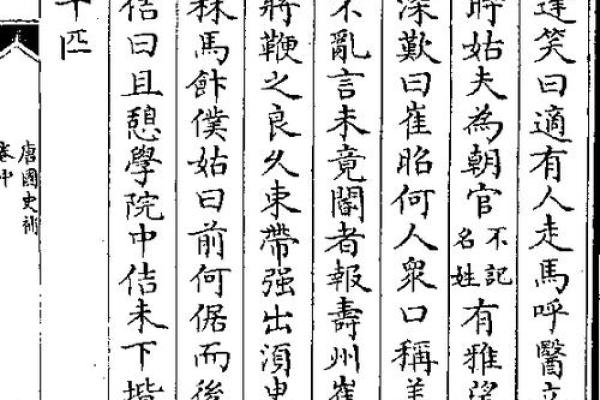 達笑曰適有人走馬呼醫立
時姑夫為朝官不記名姓有雅望
深歎曰崔昭何人衆口稱美
不亂言未竟閽者報壽州崔
將鞭之良久束帶强出湏臾
秣馬飰僕姑曰前何倨而後
佶曰且憩學院中佶未下堦
千匹
唐國史補
卷中